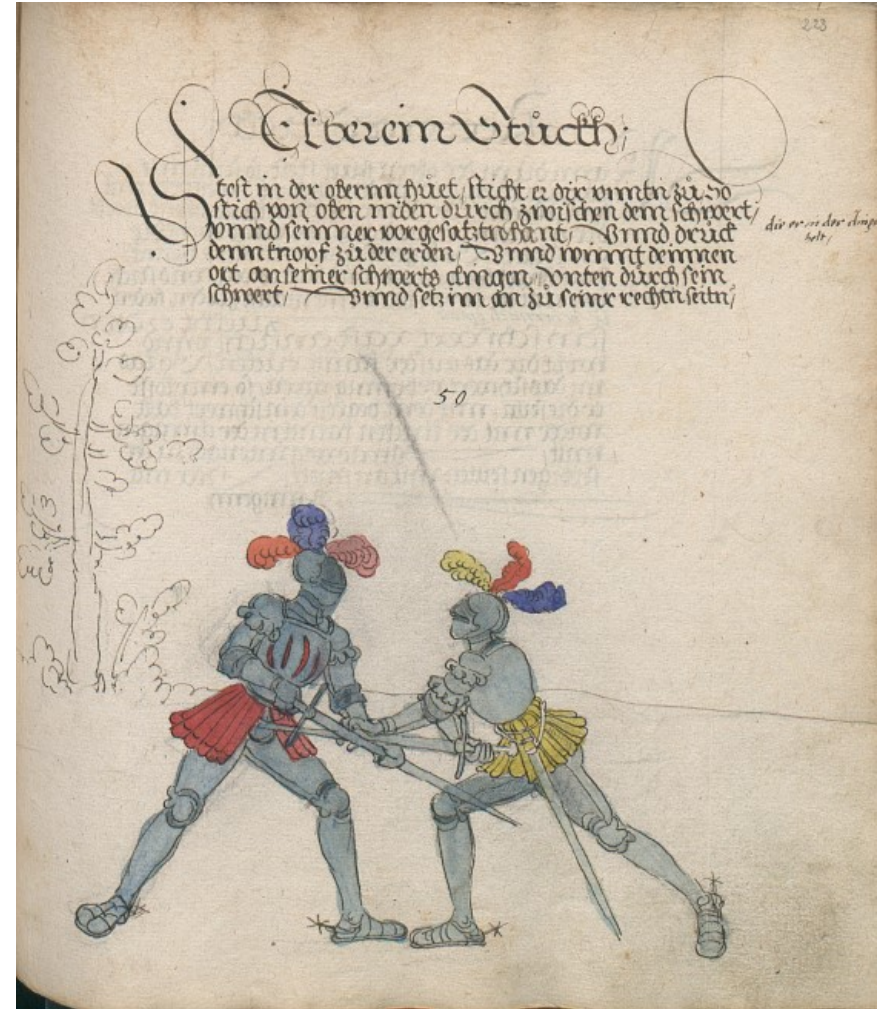 223
Aber ein Stuckh;
Stest in der obernn huet, sticht er dir vnntn zů, So
stich von oben niden durch zwischen dem schwert,
vnnd seinner vorgesatztn hant, Vnnd druck
denn knopf zů der erden, Vnnd winnt deinnen
ort an seiner schwerts clingen, vnten durch sein
schwert, Vnnd setz inn an zů seinr rechtn seitn,
die er in der
helt,
50